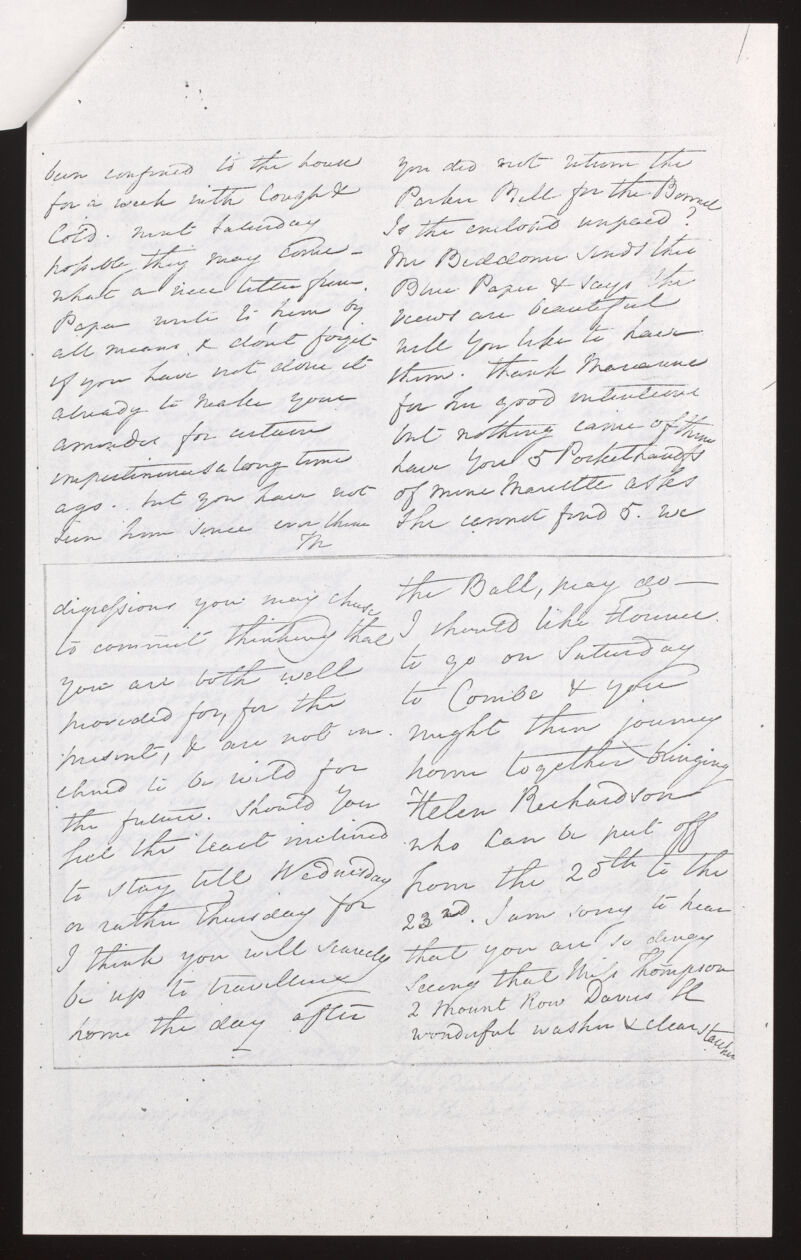 been confined to the house
for a week with Cough &
Cold. next Saturday
possible they may come –
what a nice letter from
Papa write to him by
all means & dont forget
if you have not done it
already to make your
amendes for certain
impertinences a long time
ago. but you have not
seen him since ever
The
you did not return the
Parker Bill for the Bonnet
Is the enclosed unpaid?
Mr Beddome sends this
Blue Paper & says the
views are beautiful
will you like to have
them. thank Marianne
for her good intentions
but nothing came of them
have you 5 Pockethandfs
of mine Mariette asks
She cannot find 5. we
digressions you may chuse
to commit thinking that
you are both well
provided for, for the
present, & are not in
clined to be wild for
the future. Should you
feel the least inclined
to stay till Wednesday
or rather Thursday for
I think you will scarcely
be up to travelling
home the day after
the Ball, pray do –
I should like Florence
to go on Saturday
to Combe & you
might then journey
home together bringing
Helen Richardson
who can be put off
from the 20th to the
23rd. I am sorry to hear
that you are so dingy
seeing that Miss Thompson
2 Mount Row Davies St
wonderful washer & clear starcher